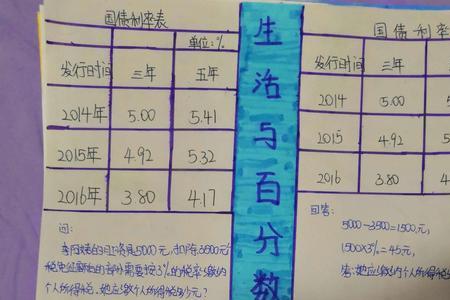 国债利率表
单位:%
发行时间 三年 五年
2014年 5.00 5.41
2015年 4.92 5.32
2016年 3.80 4.17
问:
李阿姨的月工资是5000元,扣除3500元
税免征额后的部分需要按3%的税率缴纳
个人所得税。她应缴个人所得税多少元?
生活与百分数
国债利率
发行时间 三年
2014 5.00
2015 4.92 5
2016 3.80 4
回答:
5000-3500=1500元,
1500×3%=45元,
答:她应缴纳个人所得税